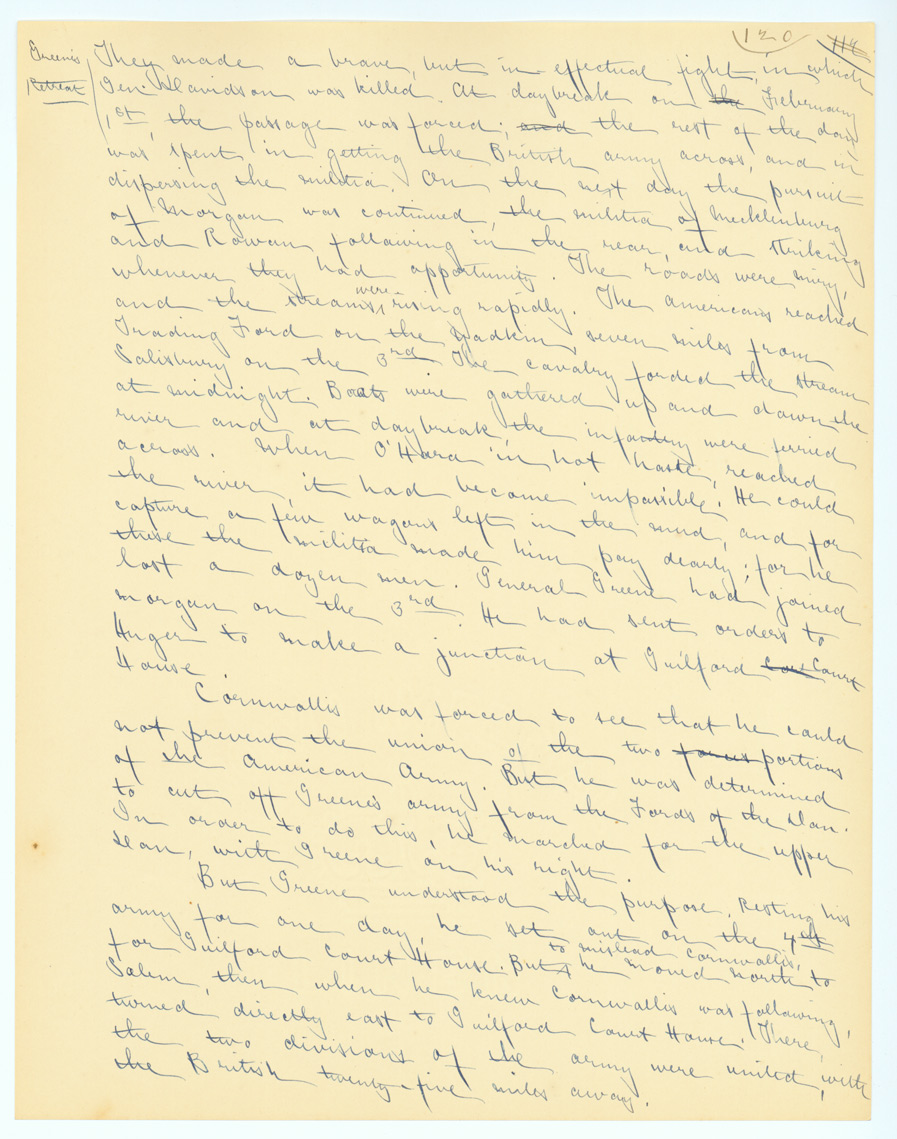 120 114
Greene's
Retreat
They made a brave, but in-effectual fight, in which
Gen. Davidson was killed. At daybreak on the February
1st, the passage was forced; and the rest of the day
was spent in getting the British army across, and in
dispersing the militia. On the next day the pursuit
of Morgan was continued, the militia of Mecklenburg
and Rowan following in the rear, and striking
whenever they had opportunity. The roads were miry,
and the streams were rising rapidly. The Americans reached
Trading Ford on the Yadkin, seven miles from
Salisbury on the 3rd. The cavalry forded the stream
at midnight. Boats were gathered up and down the
river and at daybreak, the infantry were ferried
across. When O'Hara in hot haste, reached
the river, it had become impassible. He could
capture a few wagons left in the mud, and for
these the militia made him pay dearly; for he
lost a dozen men. General Greene had joined
Morgan on the 3rd. He had sent orders to
Huger to make a junction at Guilford Cour Court
House.
Cornwallis was forced to see that he could
not prevent the union of the two forces portions
of the American Army. But he was determined
to cut off Greene's army from the Fords of the Dan.
In order to do this, he marched for the upper
Dan, with Greene on his right.
But Greene understood the purpose. Resting his
army for one day, he set out on the 4th
for Guilford Court House. But to mislead Cornwallis, he moved north to
Salem, then when he knew Cornwallis was following,
turned directly east to Guilford Court House. There,
the two divisions of the army were united, with
the British twenty-five miles away.